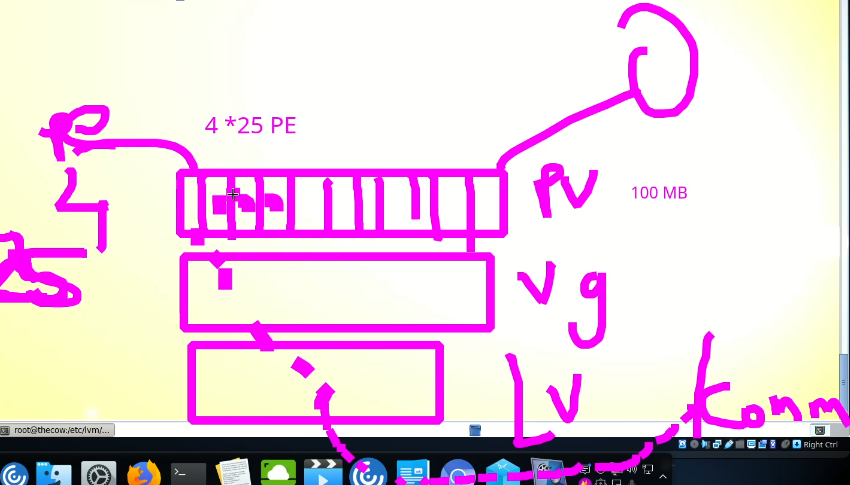 4 *25 PE
PV
100 MB
Vg
LV
Konm
root@thecow:/etc/lvm/...
Right Ctrl